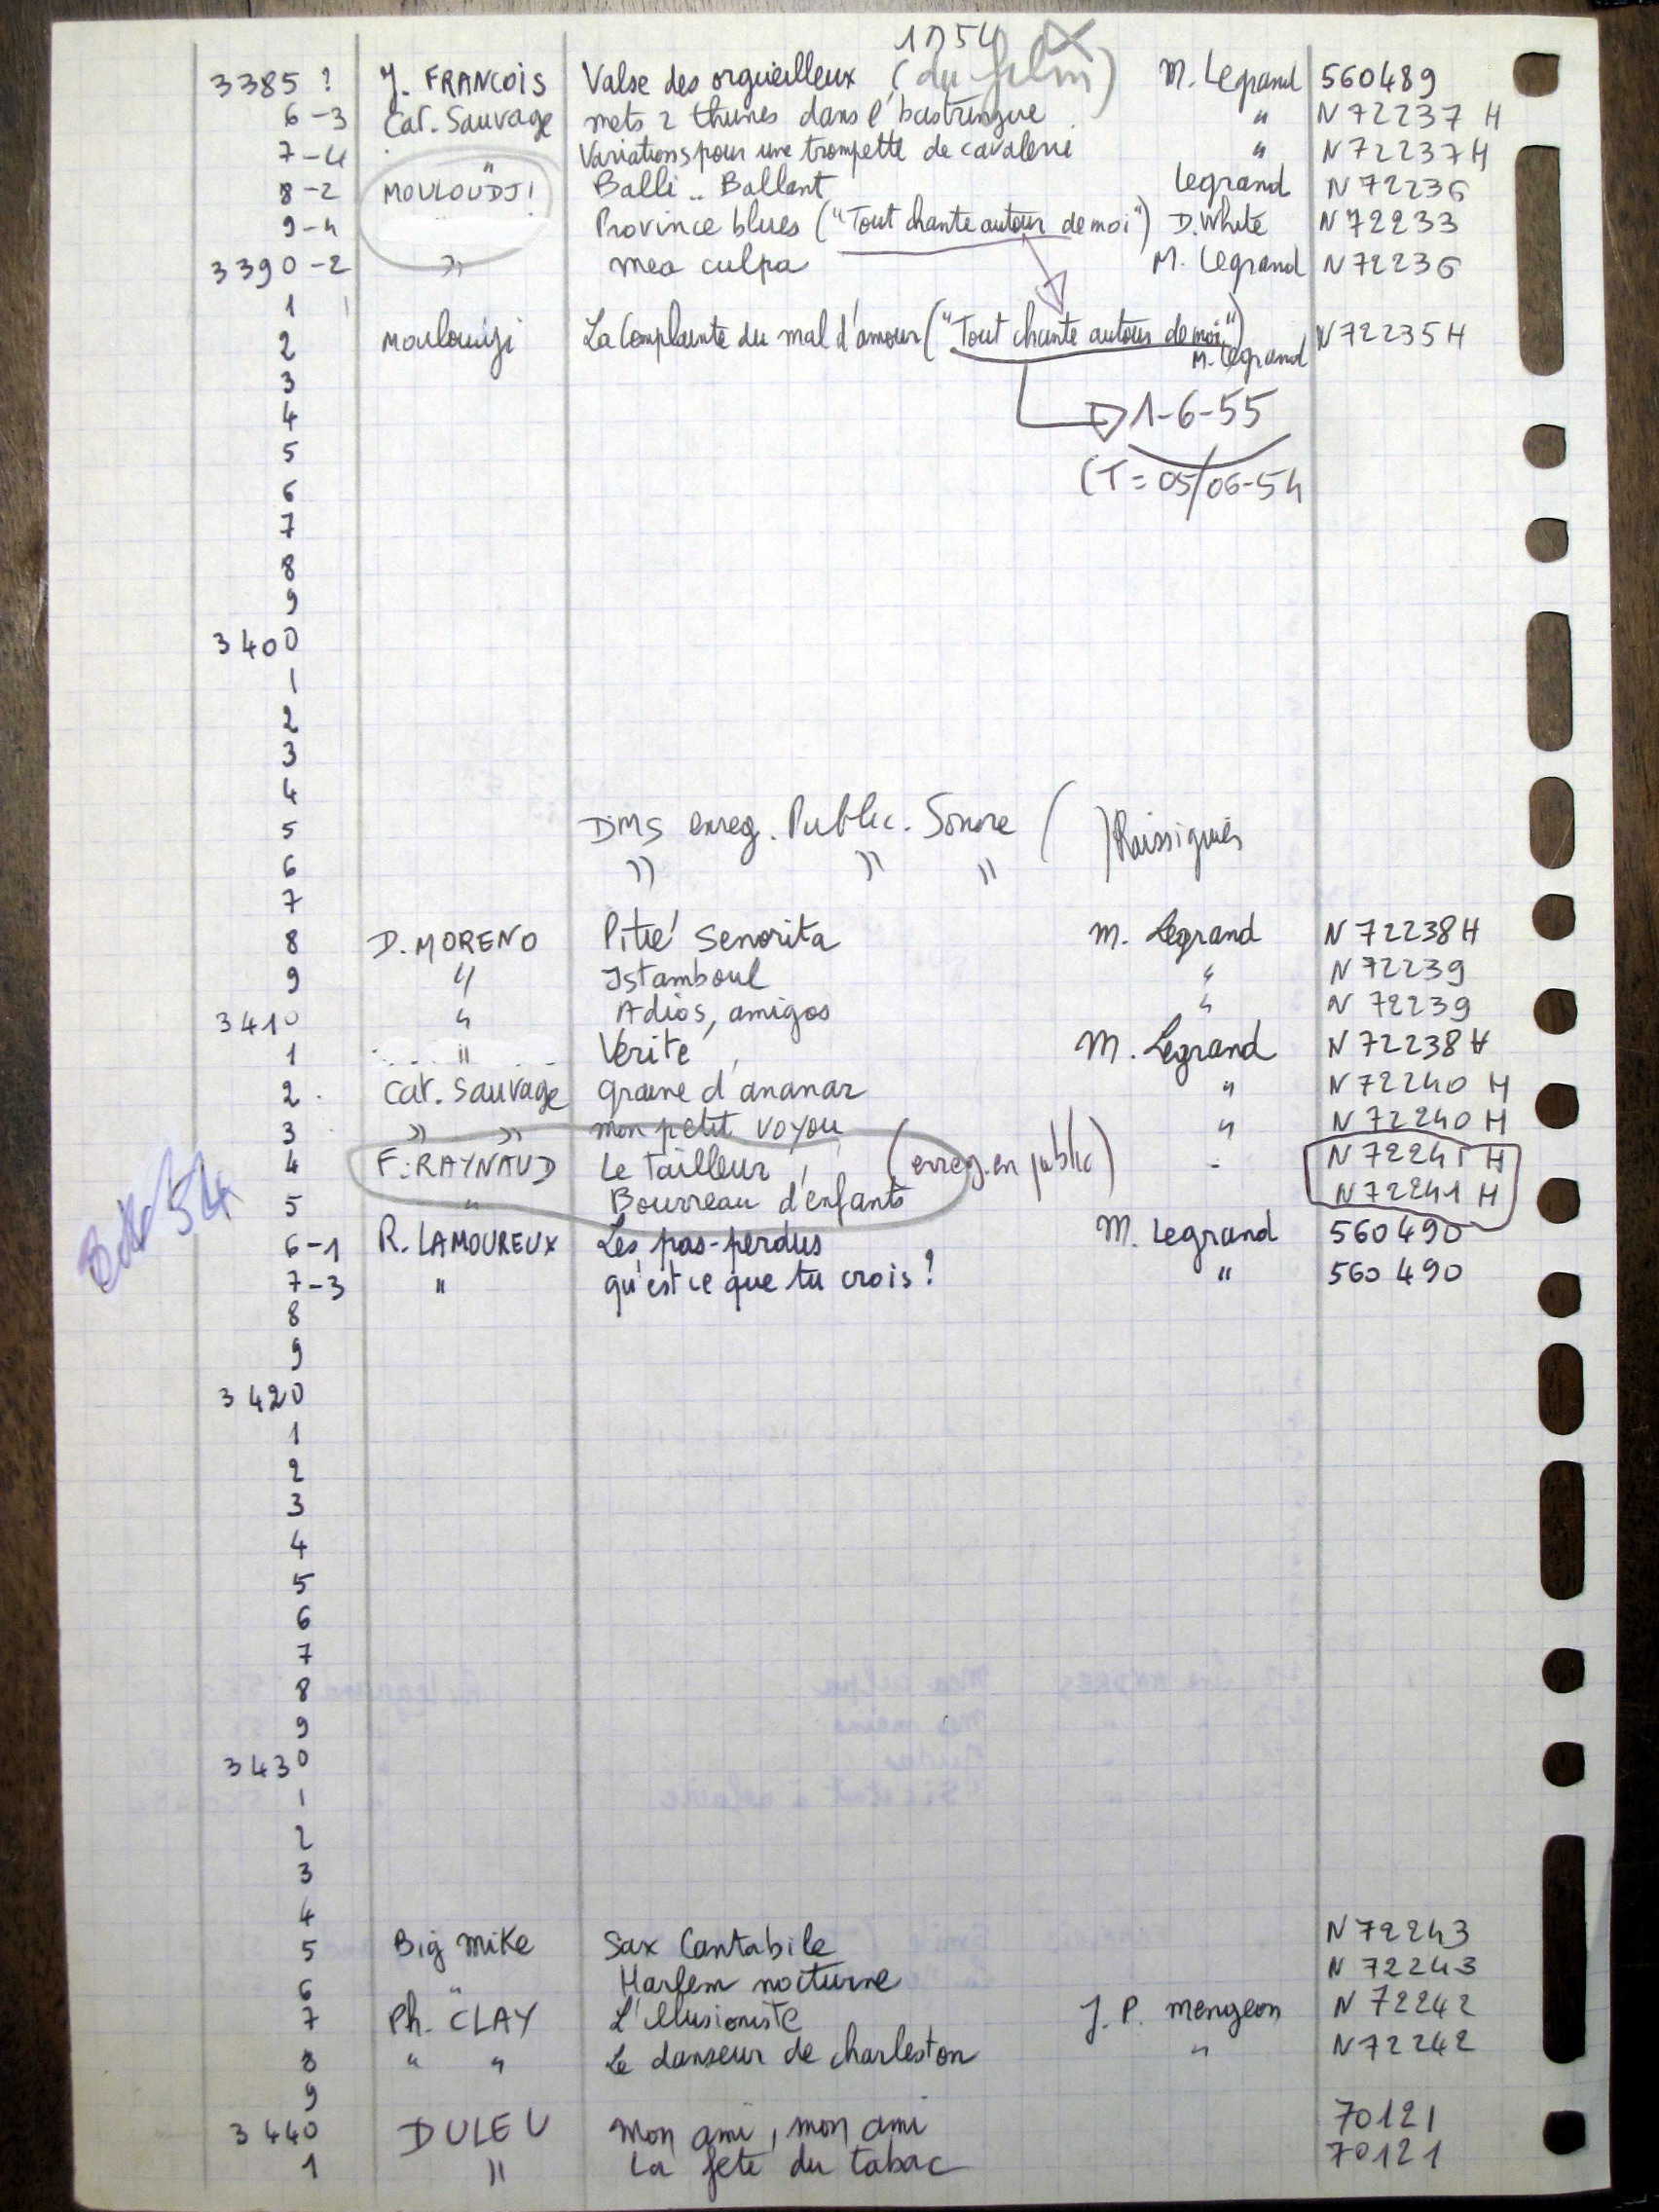 1954
3385 ? J. FRANCOIS Valse des orgueilleux (du film) M. Legrand 560489
6-3 Cat. Sauvage mets 2 thunes dans l'bastringue " N 72237 H
7-4 " Variations pour une trompette de cavalerie " N 72237 H
8-2 MOULOUDJI Balli.. Ballant Legrand N 72236
9-4 Province blues ("Tout chante autour de moi") D. White N 72233
3390-2 " mea culpa M. Legrand N 72236
1
2 Mouloudji La Complainte du mal d'amour ("Tout chante autour de moi") M. Legrand N 72235 H
3
4 1-6-55
5
6 (T = 05/06-54
7
8
9
3400
1
2
3
4
5 DMS enreg. Public. Sonore ( )
6 " " "
7
8 D. MORENO Pitié Senorita M. Legrand N 72238 H
9 " Istamboul " N 72239
3410 " Adios, amigos " N 72239
1 " Vérité M. Legrand N 72238 H
2 Cat. Sauvage graine d'ananar " N 72240 H
3 " " mon petit voyou " N 72240 H
4 F. RAYNAUD Le tailleur (enreg. en public) - N 72241 H
5 " Bourreau d'enfants N 72241 H
6-1 R. LAMOUREUX Les pas-perdus M. Legrand 560490
7-3 " qu'est ce que tu crois ? " 560 490
8
9
3420
1
2
3
4
5
6
7
8
9
3430
1
2
3
4
5 Big Mike Sax Cantabile N 72243
6 " Harlem nocturne N 72243
7 Ph. CLAY L'illusioniste J. P. Mengeon N 72242
8 " " Le danseur de charleston " N 72242
9
3440 DULEU Mon ami, mon ami 70121
1 " La fete du tabac 70121